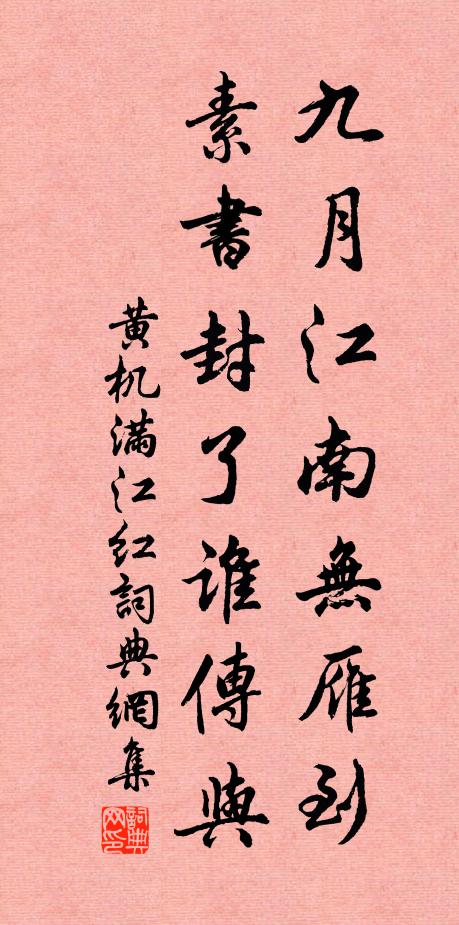 九月江南無雁到
素書封了誰傳與
黄机满江红詞典網集
詞典网印